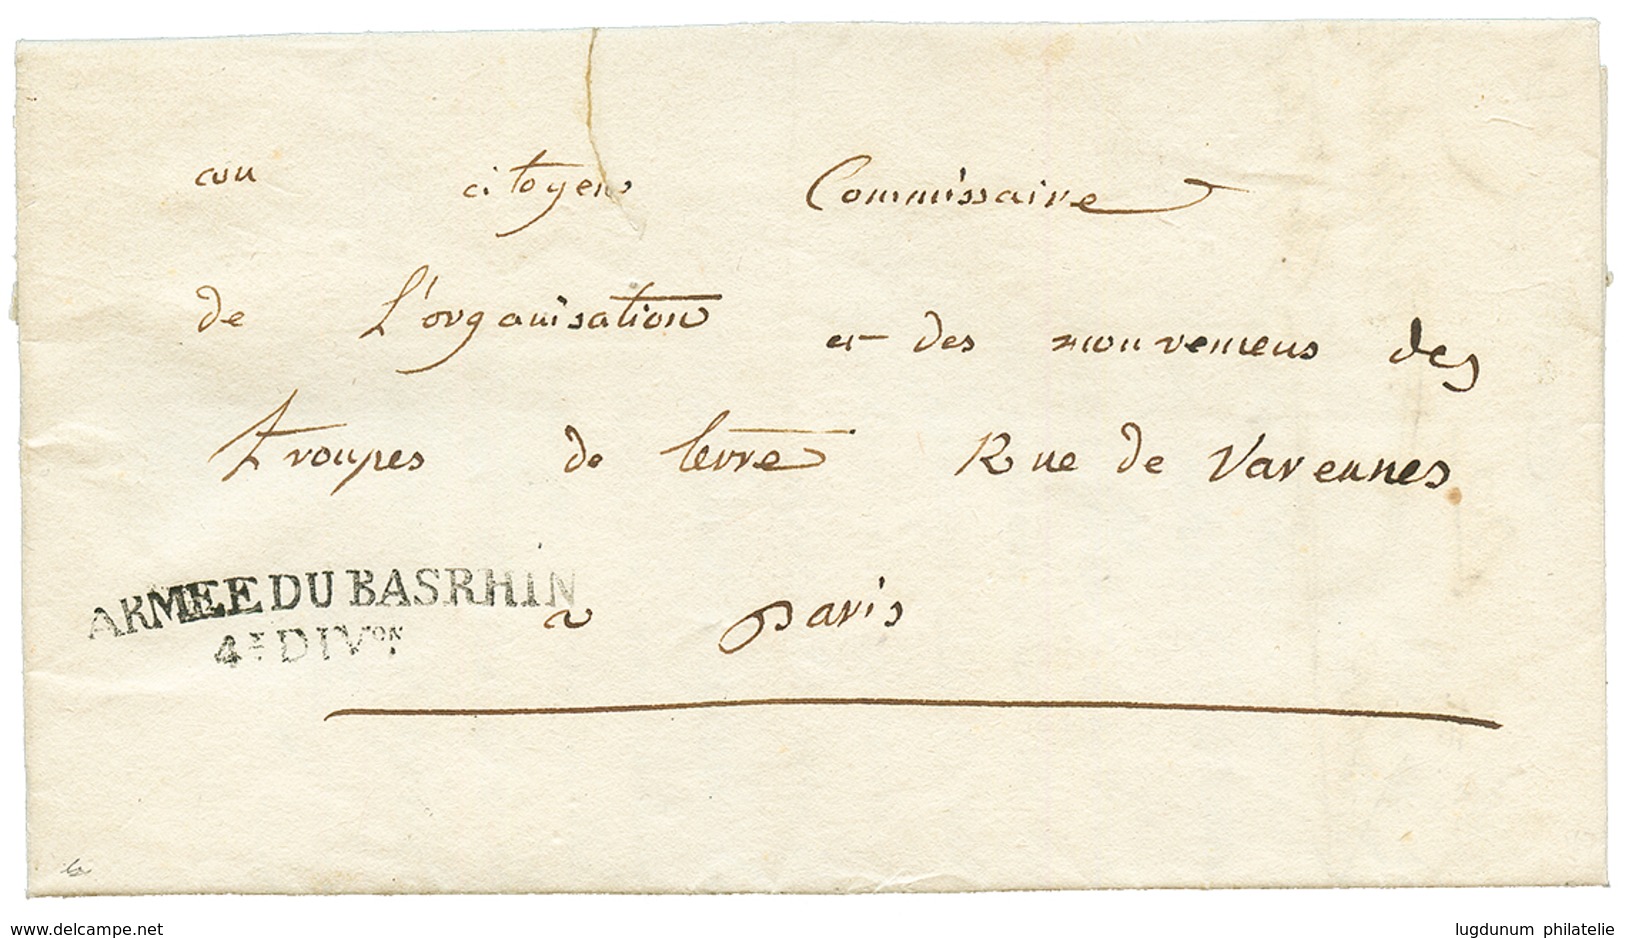 au citoyens Commissaire
de L'organisation et des mouvemens des
troupes de terre Rue de Varennes
ARMEE DU BASRHIN
4E DIVON
a paris
www.delcampe.net
lugdunum philatelie